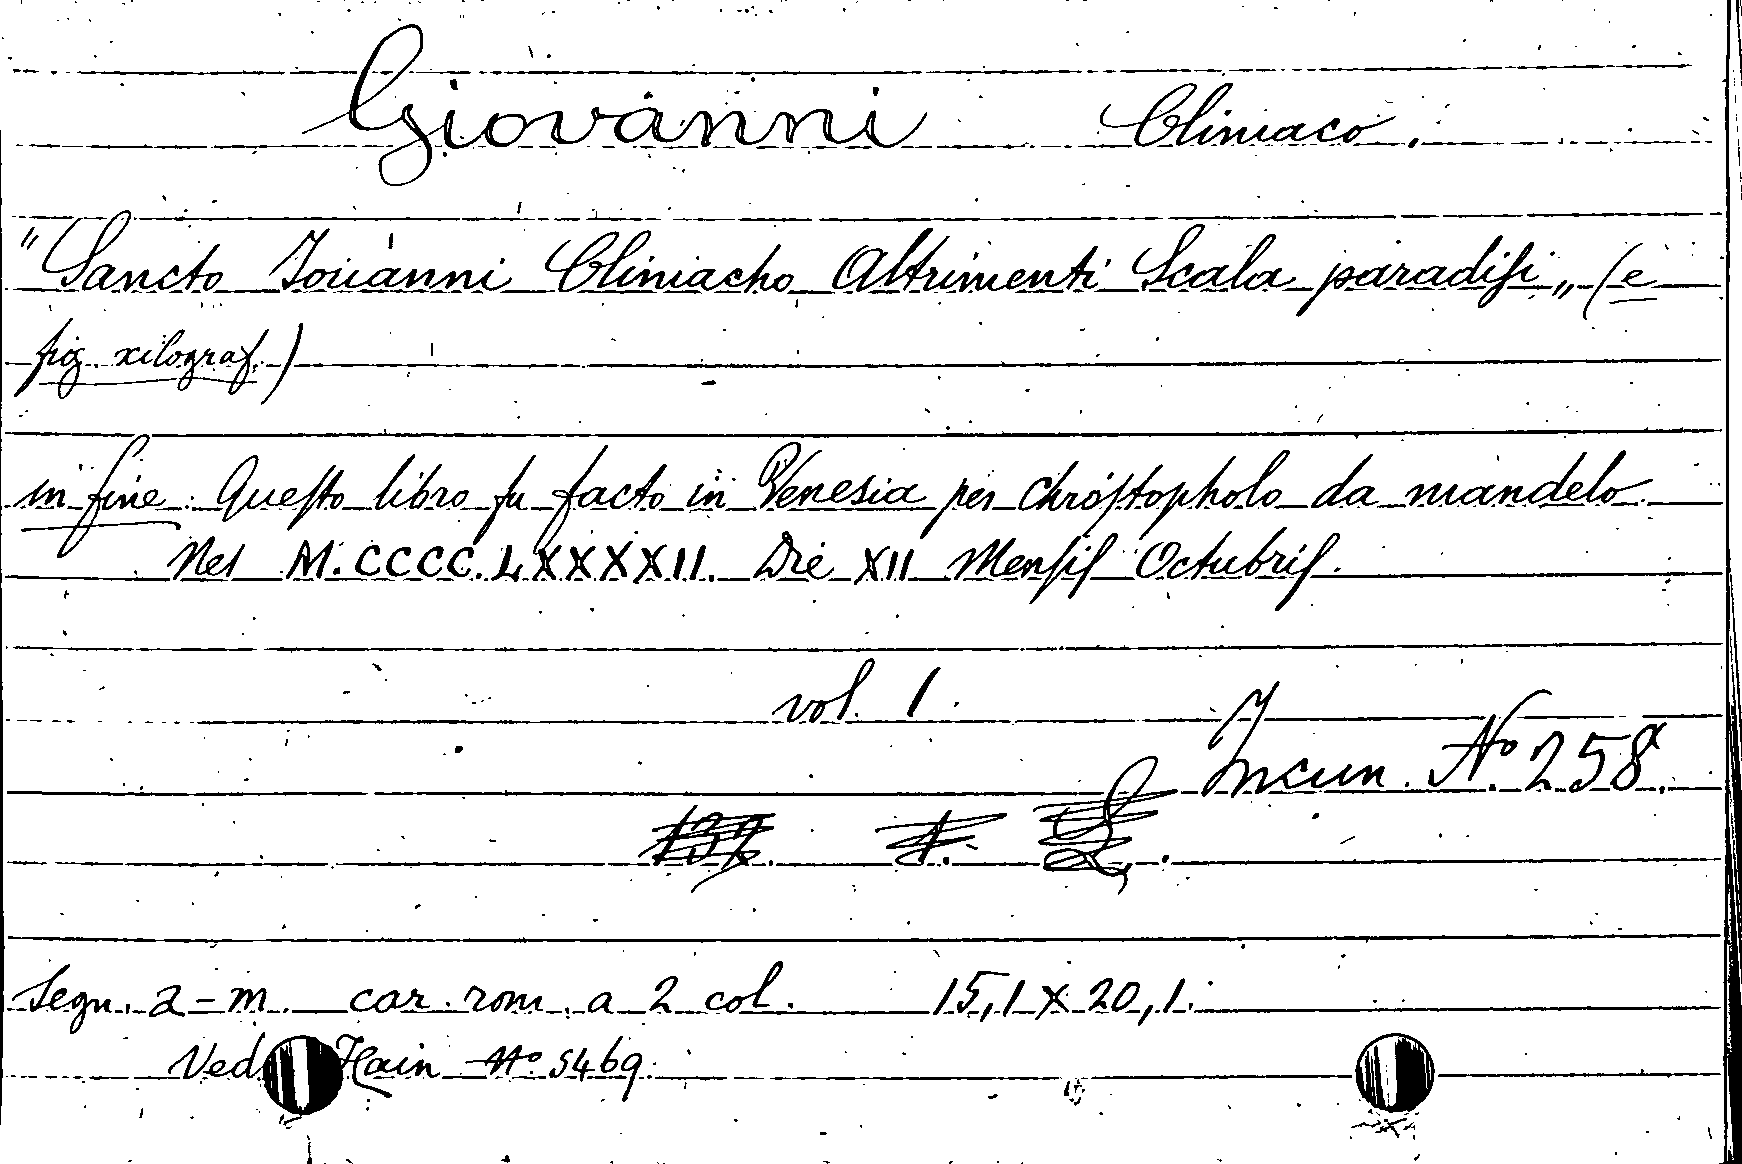 Giovanni Cliniaco.
"Sancto Iouanni Cliniacho Altrimenti Scala paradisi„ (e
fig. xilograf.)
in fine: Questo libro fu facto in Venesia per christopholo da mandelo
Nel M.CCCC.LXXXXII. Die XII Mensis Octubris.
vol. 1.
Incun. No. 258.
137. 1.
Segn. a-m. car. rom. a 2 col. 15,1 X 20,1.
Ved Hain No 5469.